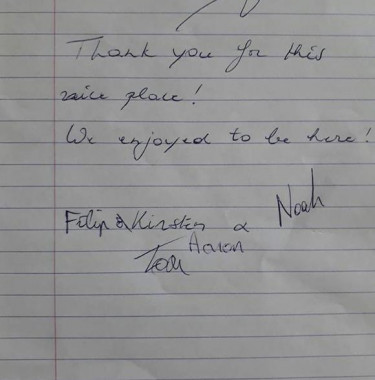 Thank you for this
nice place!
We enjoyed to be here!
Filip & Kirsten & Noah
Aaron